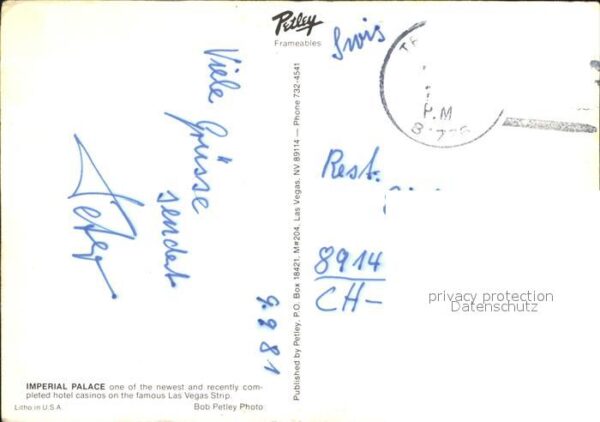 Petley
Frameables
Viele Grüsse
sendet
Peter
9.2 81
Published by Petley, P.O. Box 18421, M#204, Las Vegas, NV 89114 — Phone 732-4541
P.M
Rest.
8914
CH-
privacy protection
Datenschutz
IMPERIAL PALACE one of the newest and recently com-
pleted hotel casinos on the famous Las Vegas Strip.
Litho in U.S.A. Bob Petley Photo